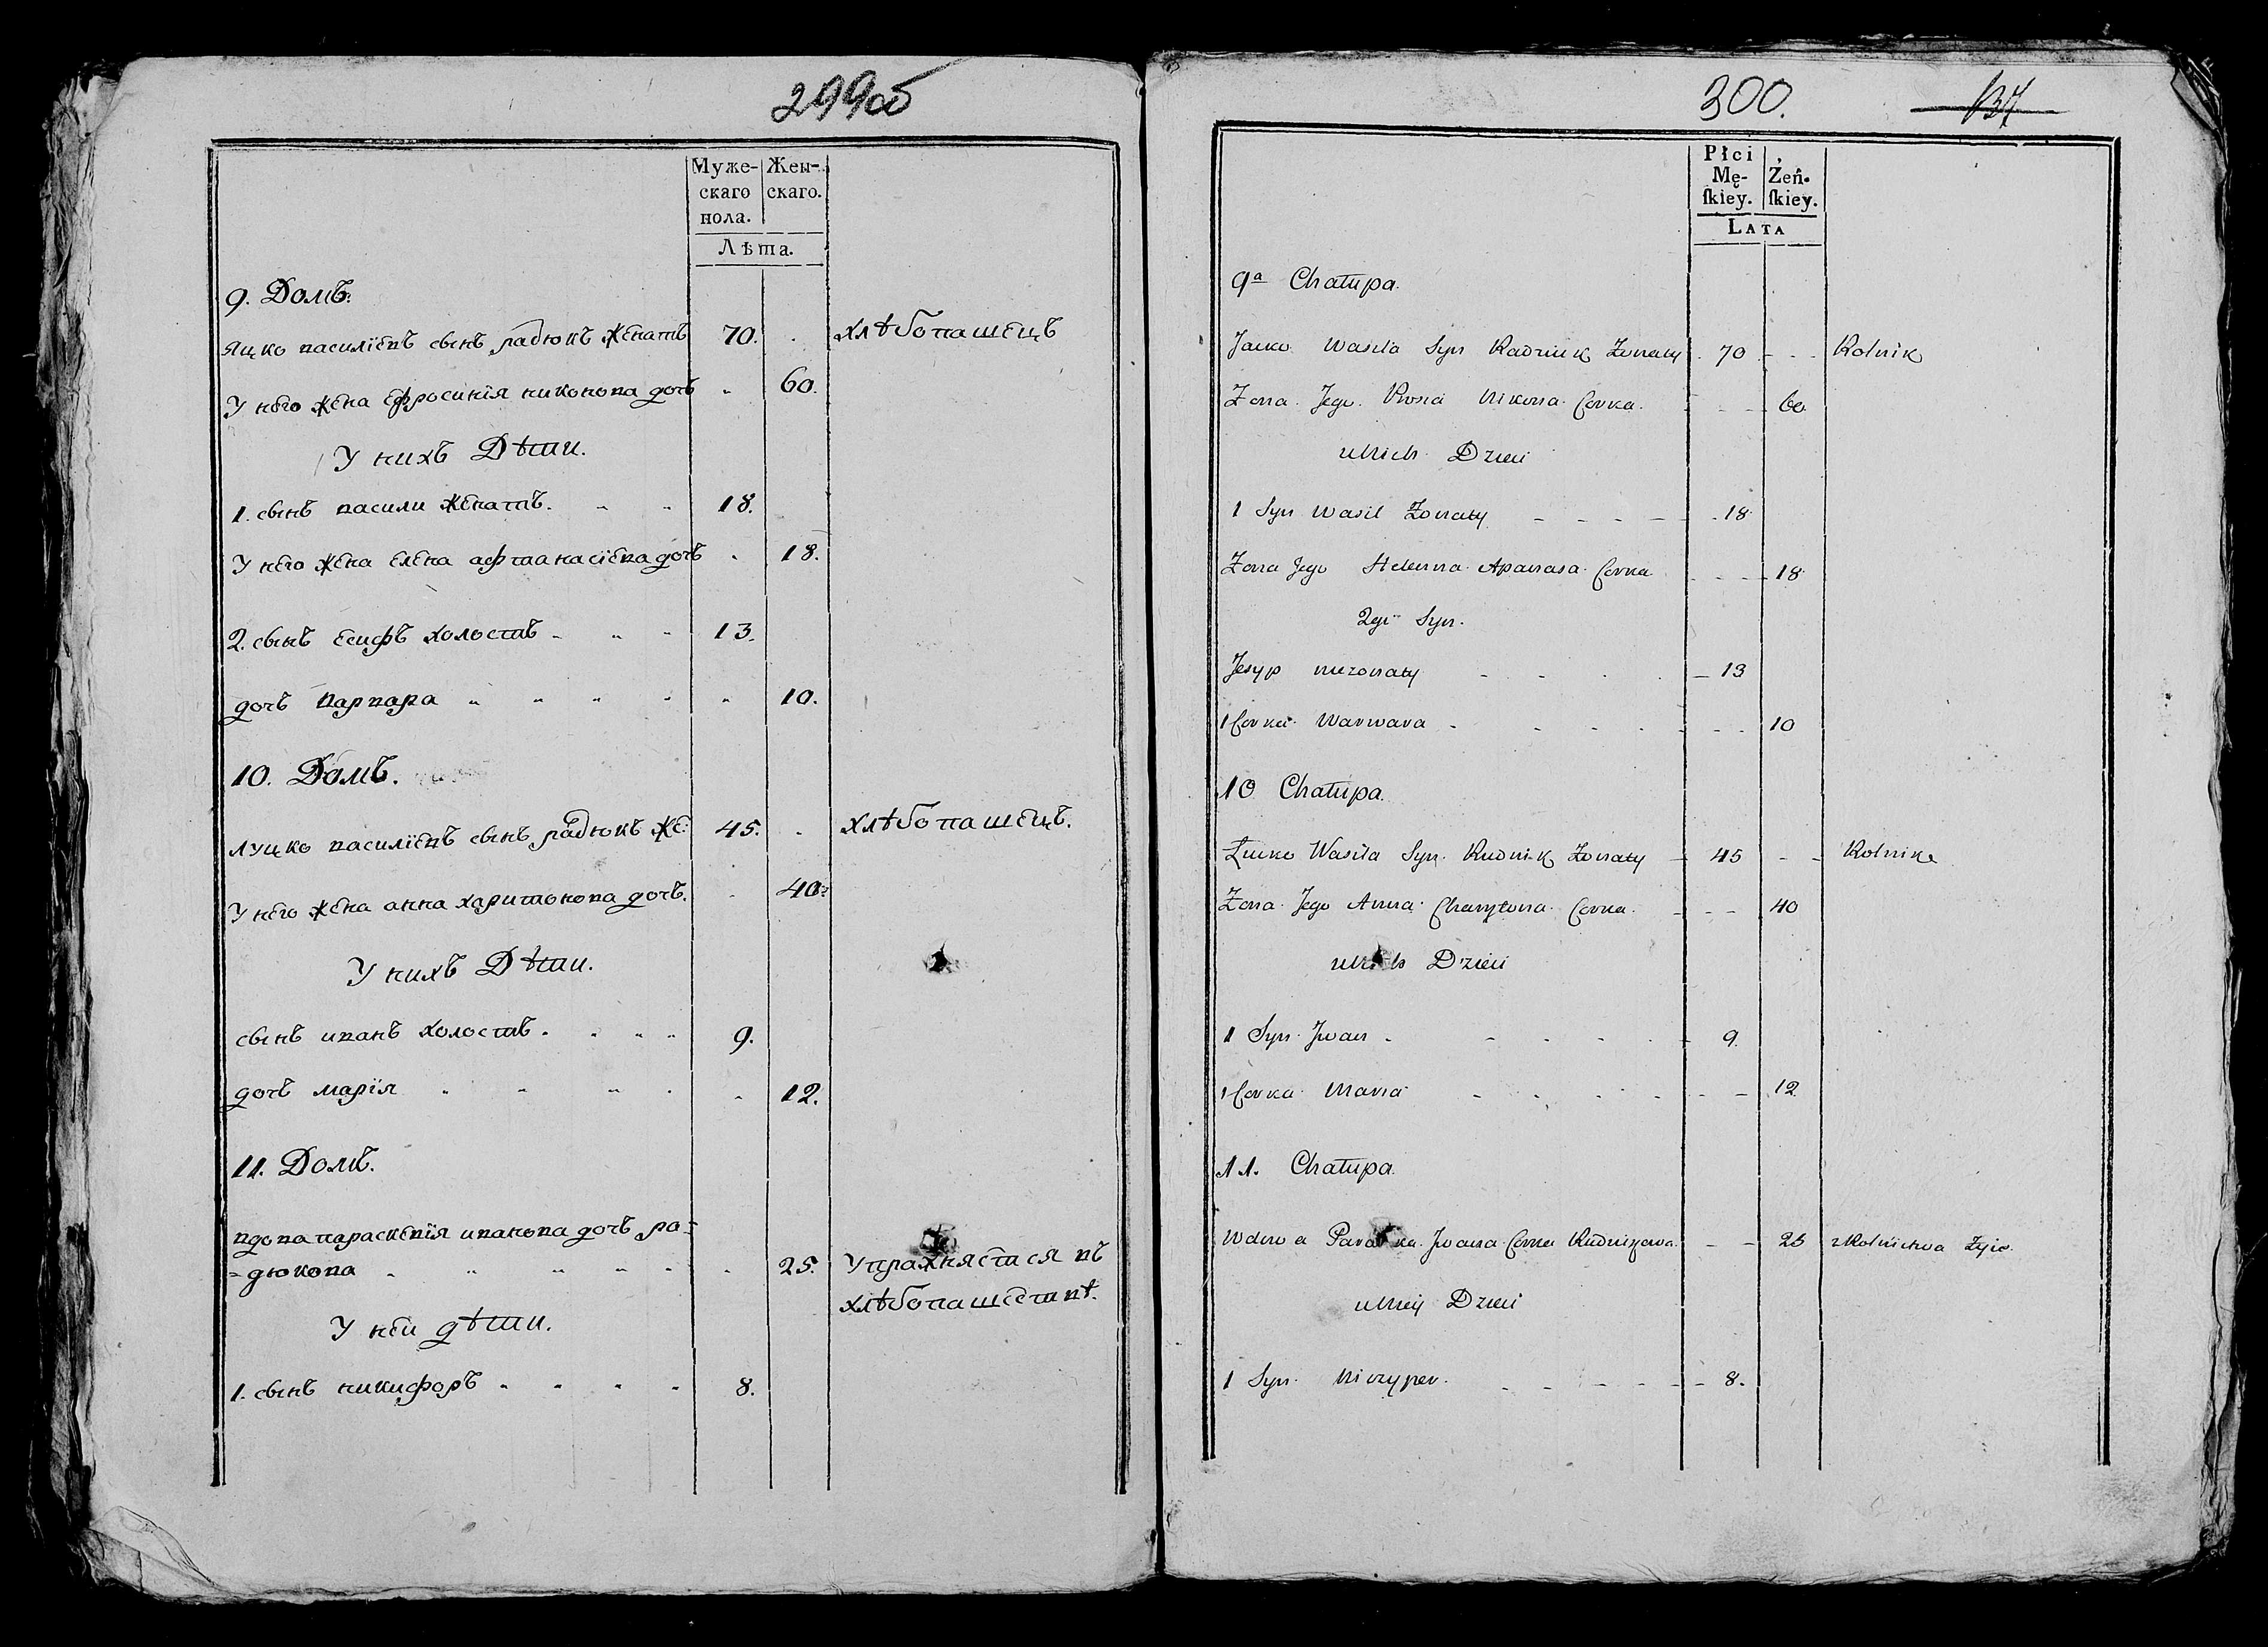 299об
Муже-
скаго
пола.
Жен-
скаго.
Лѣта.
9. Домъ.
Яцко василiевъ сынъ радюкъ женатъ 70. хлѣбопашецъ
У него жена ефросинiя никонова дочъ 60.
У нихъ Дѣти.
1. сынъ васили женатъ. 18.
У него жена елена афтанасiева дочъ 18.
2. сынъ есифъ холостъ 13.
дочъ варвара 10.
10. Домъ.
луцко василiевъ сынъ радюкъ же: 45. хлѣбопашецъ.
У него жена анна харитонова дочъ. 40.
У нихъ Дѣти.
сынъ иванъ холостъ. 9.
дочъ марiя 12.
11. Домъ.
вдова параскевiя иванова дочъ ра=
=дюкова 25. Упражняется въ
хлѣбопашестве.
У неи дѣти.
1. сынъ никифоръ 8.
300. 137
Płci
Mę-
ſkiey.
Żeń-
ſkiey.
LATA
9a Chałupa.
Jacko Wasila Syn Radziuk Zonaty 70 Rolnik
Zona Jego Nikona Corka 60
uNich Dzieci
1 Syn Wasil Zonaty 18
Zona Jego Helenna Apanasa Corka 18
2gi Syn.
Jesyp niezonaty 13
1 Corka Warwara 10
10 Chałupa.
Łucko Wasila Syn Zonaty 45 Rolnik
Zona Jego Anna Charytona Corka 40
uNich Dzieci
1 Syn Jwan 9.
1 Corka Maria 12
11. Chałupa.
Wdowa Paraska Jwana Corka 25 zRolnictwa Zyie.
uNiey Dzieci
1 Syn Niczyper. 8.